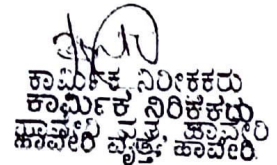 ಕಾರ್ಮಿಕ ನಿರೀಕ್ಷಕರು
ಕಾರ್ಮಿಕ ನಿರಿಕಕರು
ಹಾವೇರಿ ವೃತ್ತ, ಹಾವೇರಿ
ಹಾವೇರಿ ವೃತ್ತ, ಹಾವೇರಿ.